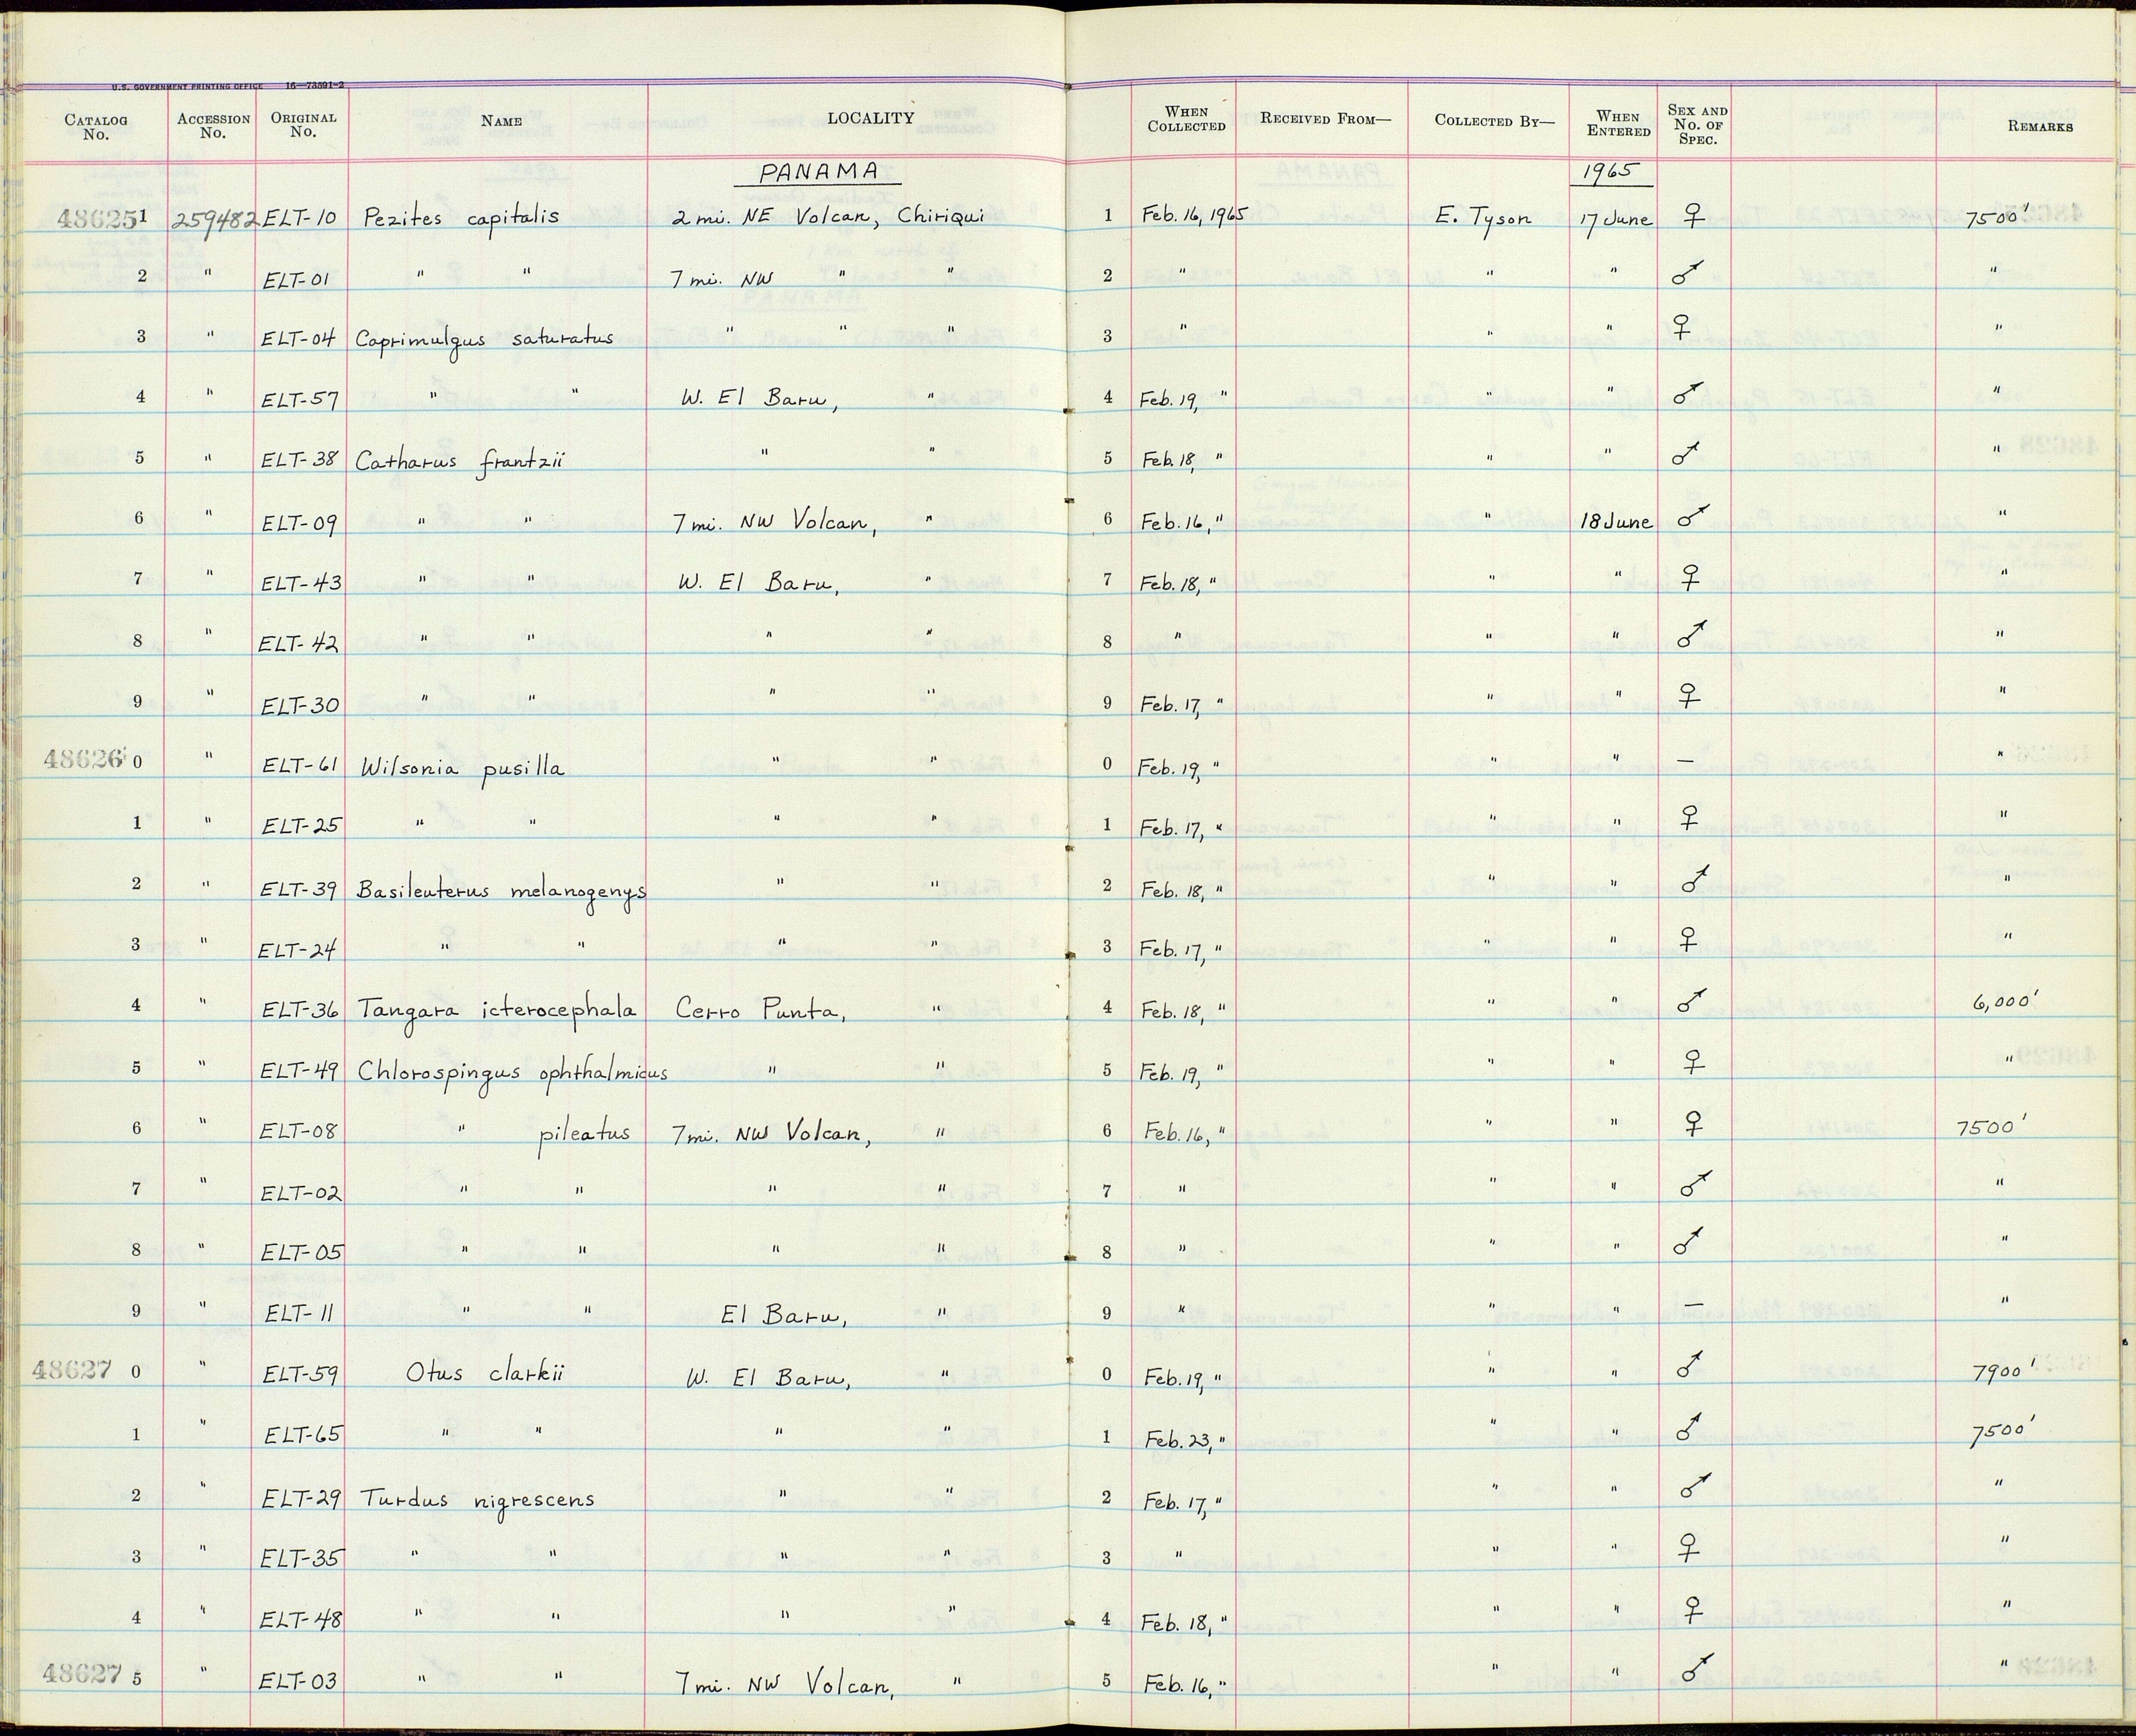 U.S. GOVERNMENT PRINTING OFFICE 16—73591-2
CATALOG No. ACCESSION No. ORIGINAL No. NAME LOCALITY WHEN COLLECTED RECEIVED FROM— COLLECTED BY— WHEN ENTERED SEX AND No. OF SPEC. REMARKS
PANAMA 1965
486251 259482 ELT-10 Pezites capitalis 2 mi. NE Volcan, Chiriqui 1 Feb. 16, 1965 E. Tyson 17 June ♀ 7500'
2 " ELT-01 " " 7 mi. NW " " 2 " " " ♂ "
3 " ELT-04 Caprimulgus saturatus " " " 3 " " " ♀ "
4 " ELT-57 " " W. El Baru, " 4 Feb. 19, " " " ♂ "
5 " ELT-38 Catharus frantzii " " 5 Feb. 18, " " " ♂ "
6 " ELT-09 " " 7 mi. NW Volcan, " 6 Feb. 16, " " 18 June ♂ "
7 " ELT-43 " " W. El Baru, " 7 Feb. 18, " " " ♀ "
8 " ELT-42 " " " " 8 " " " ♂ "
9 " ELT-30 " " " " 9 Feb. 17, " " " ♀ "
48626 0 " ELT-61 Wilsonia pusilla " " 0 Feb. 19, " " " — "
1 " ELT-25 " " " " 1 Feb. 17, " " " ♀ "
2 " ELT-39 Basileuterus melanogenys " " 2 Feb. 18, " " " ♂ "
3 " ELT-24 " " " " 3 Feb. 17, " " " ♀ "
4 " ELT-36 Tangara icterocephala Cerro Punta, " 4 Feb. 18, " " " ♂ 6,000'
5 " ELT-49 Chlorospingus ophthalmicus " " 5 Feb. 19, " " " ♀ "
6 " ELT-08 " pileatus 7 mi. NW Volcan, " 6 Feb. 16, " " " ♀ 7500'
7 " ELT-02 " " " " 7 " " " ♂ "
8 " ELT-05 " " " " 8 " " " ♂ "
9 " ELT-11 " " El Baru, " 9 " " " — "
48627 0 " ELT-59 Otus clarkii W. El Baru, " 0 Feb. 19, " " " ♂ 7900'
1 " ELT-65 " " " " 1 Feb. 23, " " " ♂ 7500'
2 " ELT-29 Turdus nigrescens " " 2 Feb. 17, " " " ♂ "
3 " ELT-35 " " " " 3 " " " ♀ "
4 " ELT-48 " " " " 4 Feb. 18, " " " ♀ "
48627 5 " ELT-03 " " 7 mi. NW Volcan, " 5 Feb. 16, " " " ♂ "